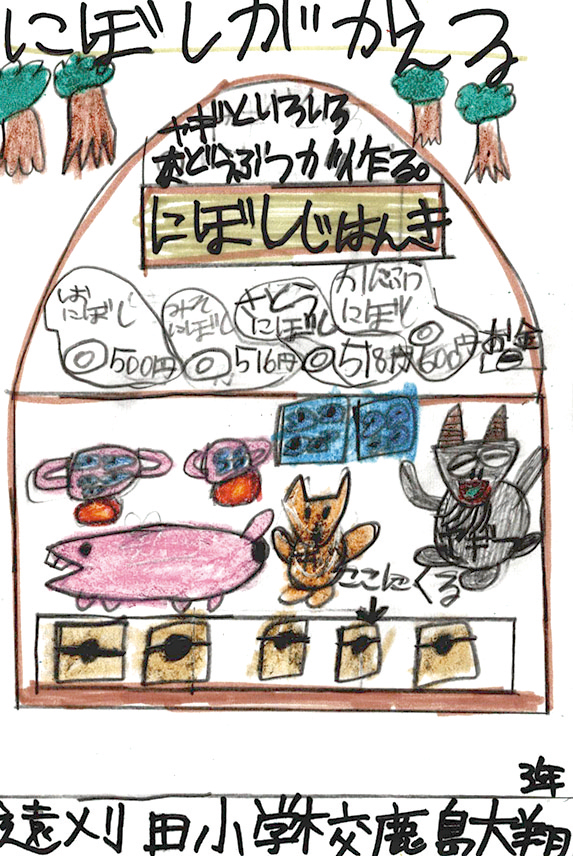 にぼしがかえる
ヤギといろいろ
などうぶつが作る。
にぼしじはんき
おにぼし
みそにぼし
さとうにぼし
かんぶつにぼし
500円
516円
518円
600円
お金
ヤギー
ここにくる
3年
遠刈田小学校鹿島大翔